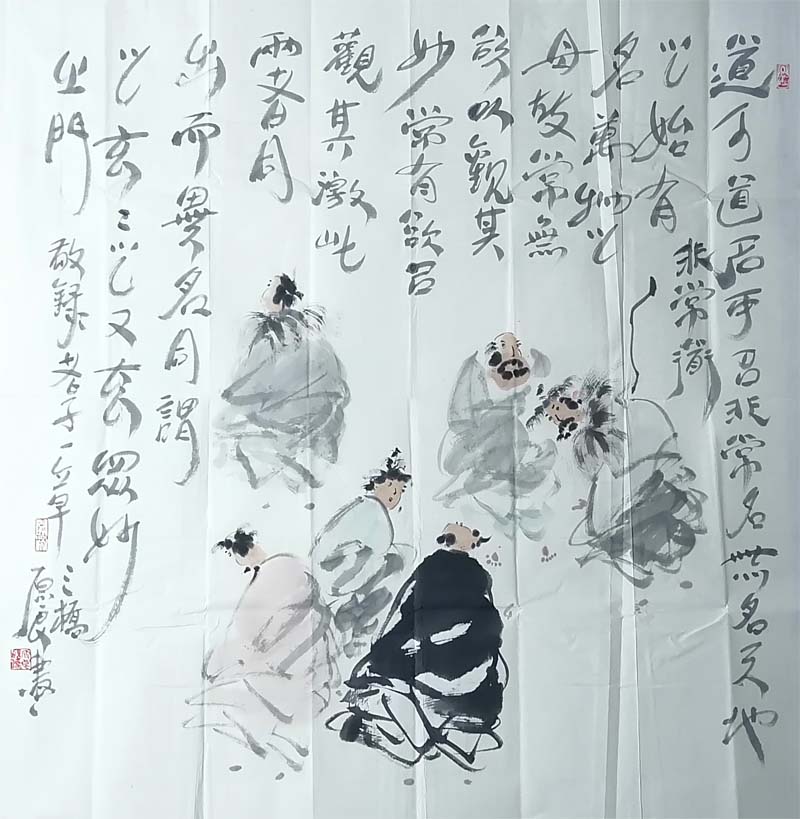 道可道名可名非常名無名天地
非常道
之始有
名萬物之
母故常無
欲以觀其
妙常有欲以
觀其徼此
兩者同
出而異名同謂
之玄〻之又玄眾妙
之門
敬録老子一章
三橋
原良